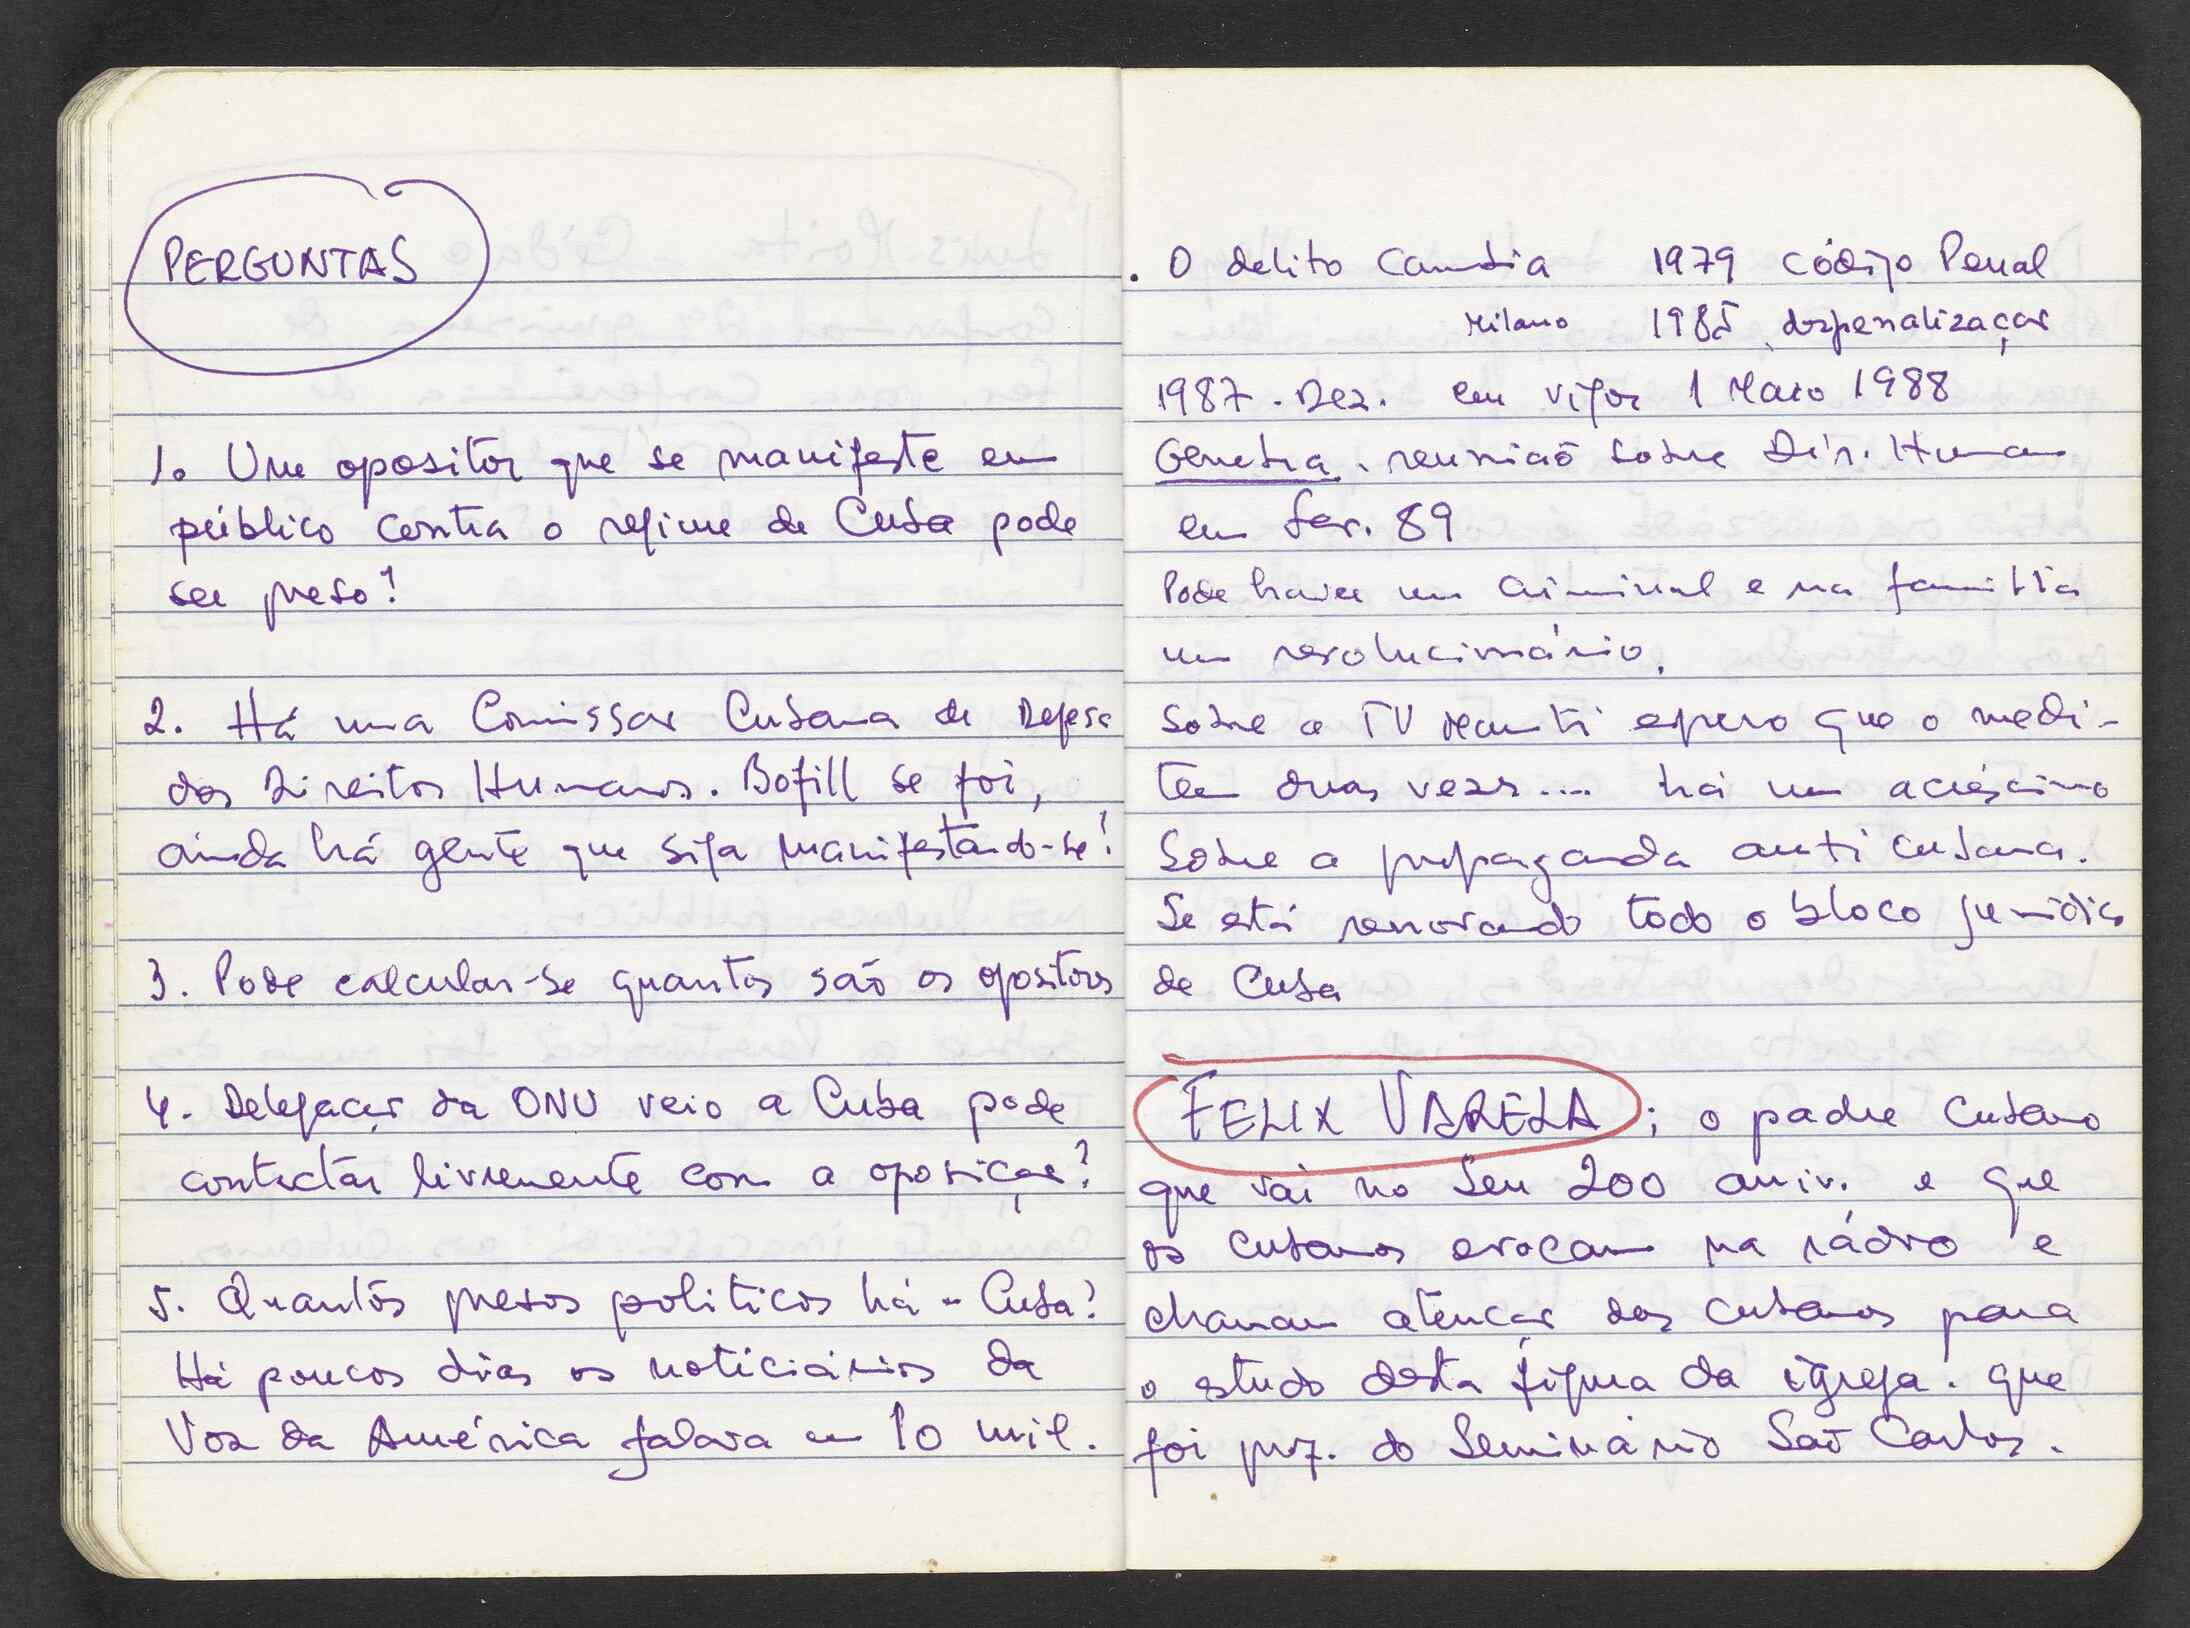 PERGUNTAS
1. Um opositor que se manifeste em
público contra o regime de Cuba pode
ser preso?
2. Há uma Comissão Cubana de Defesa
dos Direitos Humanos. Bofill se foi,
ainda há gente que siga manifestando-se?
3. Pode calcular-se quantos são os opositores
4. Delegação da ONU veio a Cuba pode
contactar livremente com a oposição?
5. Quantos presos politicos há em Cuba?
Há poucos dias os noticiários da
Voz da América falava em 10 mil.
. O delito Cambia 1979 Código Penal
Milano 1985 despenalização
1987. Dez. em vigor 1 Maio 1988
Genebra. reunião sobre Dir. Human
em fev. 89
Pode haver um criminal e na familia
um revolucionário.
Sobre a TV Marti espero que o medi-
tem duas vezes.... há um acréscimo
Sobre a propaganda anti cubana.
Se está renovando todo o bloco juridico
de Cuba
FELIX VARELA; o padre Cubano
que vai no seu 200 aniv. e que
os cubanos evocam na rádio e
chamam atenção dos cubanos para
o estudo desta figura da igreja. que
foi prof. do Seminário São Carlos.